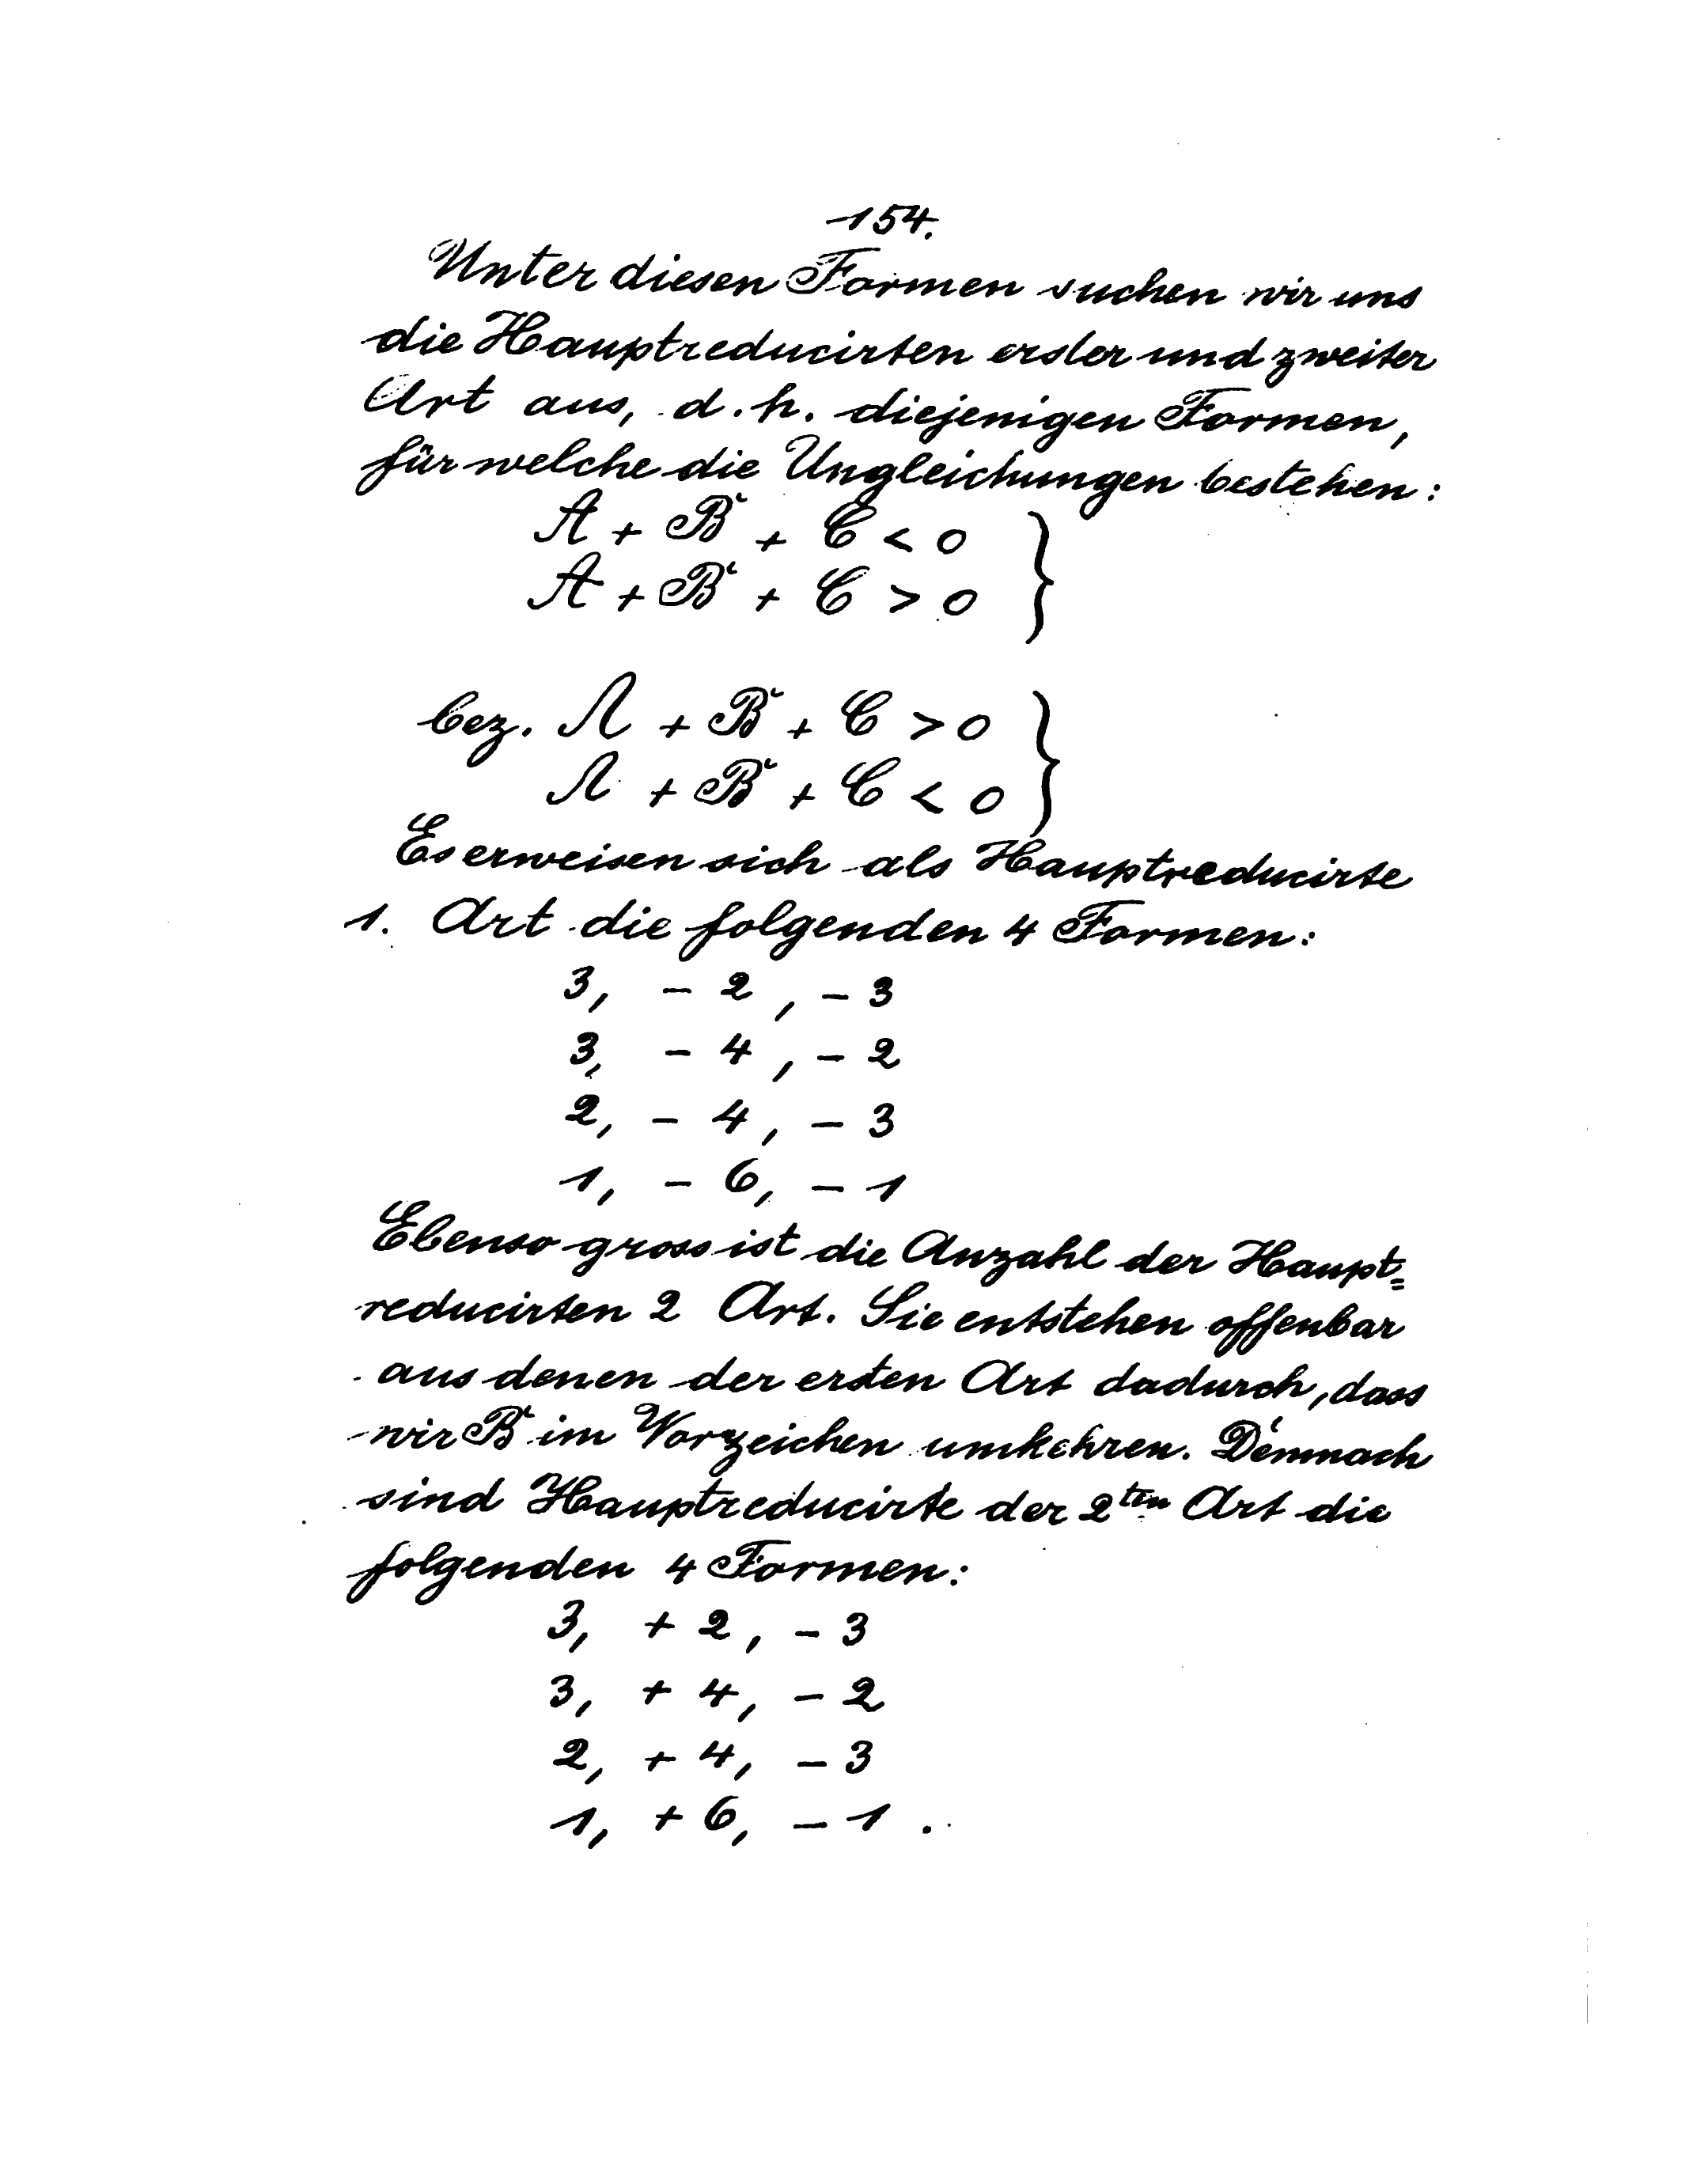 154.
Unter diesen Formen suchen wir uns
die Hauptreducirten erster und zweiter
Art aus, d.h. diejenigen Formen,
für welche die Ungleichungen bestehen:
A + B + C < 0
A + B + C > 0 }
bez. A + B + C > 0
A + B + C < 0 }
Es erweisen sich als Hauptreducirte
1. Art die folgenden 4 Formen:
3, - 2, - 3
3, - 4, - 2
2, - 4, - 3
1, - 6, - 1
Ebenso gross ist die Anzahl der Haupt=
reducirten 2 Art. Sie entstehen offenbar
aus denen der ersten Art dadurch, dass
wir B im Vorzeichen umkehren. Demnach
sind Hauptreducirte der 2ten Art die
folgenden 4 Formen:
3, + 2, - 3
3, + 4, - 2
2, + 4, - 3
1, + 6, - 1.